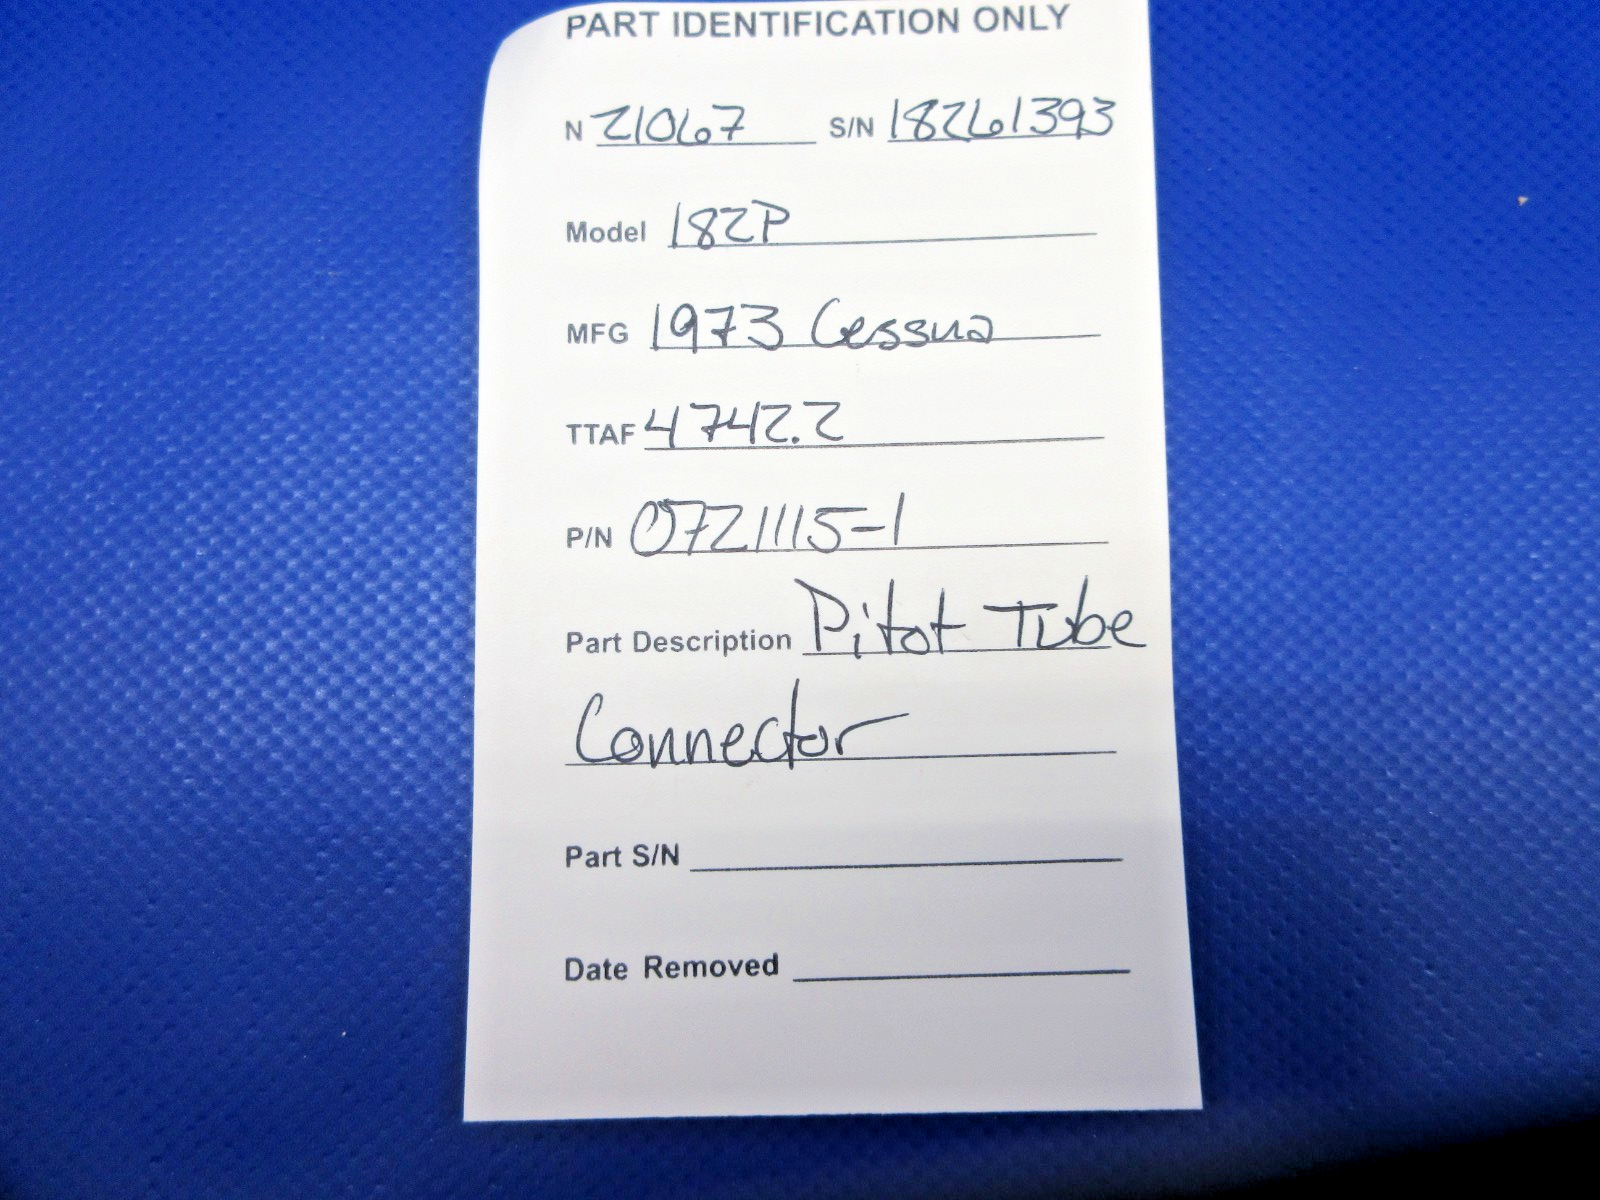 PART IDENTIFICATION ONLY
N 21067 S/N 18261393
Model 182P
MFG 1973 Cessna
TTAF 4742.2
P/N 0721115-1
Part Description Pitot Tube
Connector
Part S/N
Date Removed